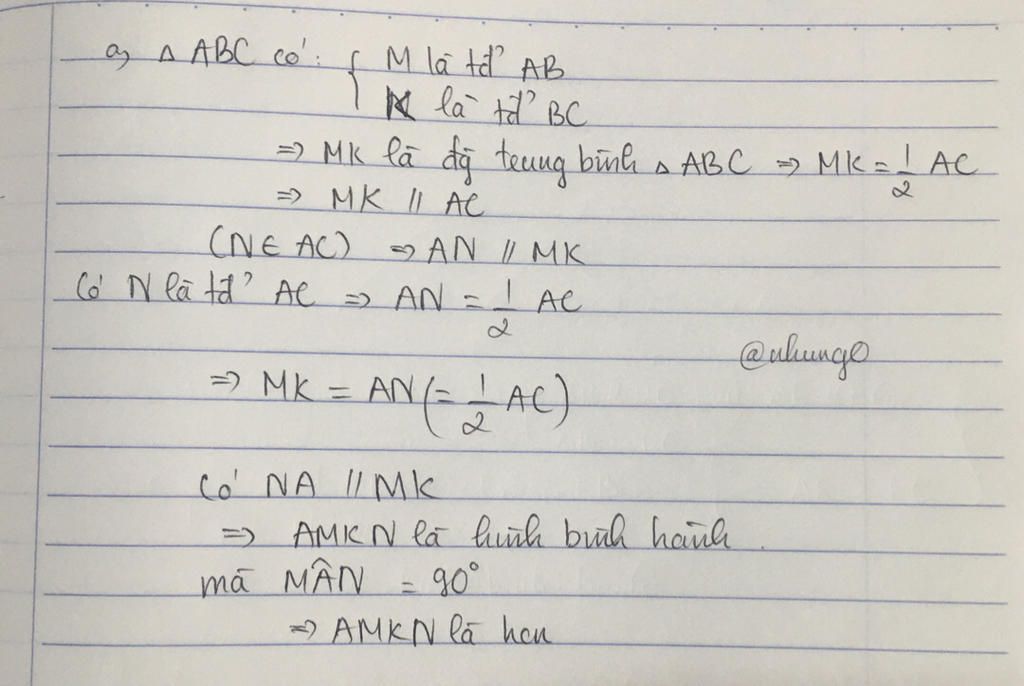 a, △ ABC có: { M là tđ' AB
K là tđ' BC
=> MK là đg̀ trung bình △ ABC => MK = 1/2 AC
=> MK // AC
(N ∈ AC) => AN // MK
Có N là tđ' AC => AN = 1/2 AC
@nhung0
=> MK = AN (= 1/2 AC)
Có NA // MK
=> AMKN là hình bình hành.
mà MÂN = 90°
=> AMKN là hcn